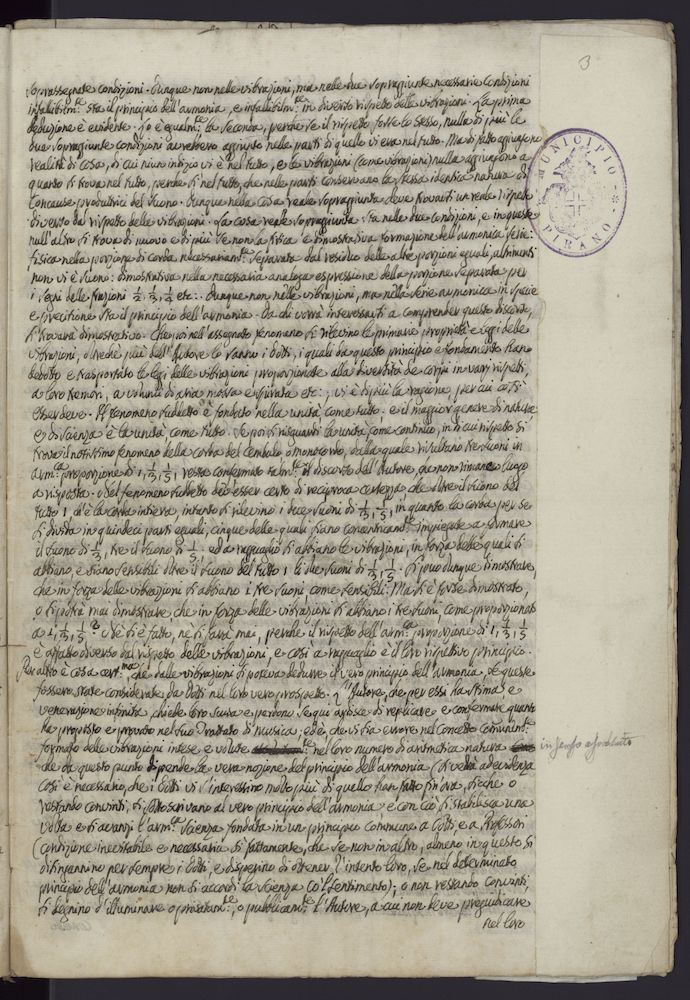 3
MUNICIPIO PIRANO
sopra assegnate condizioni. Dunque non nelle vibrazioni, ma nelle due sopragiunte necessarie condizioni
infallibilm.te sta il principio dell'armonia, e infallibilm.te in diverso rispetto delle vibrazioni. La prima
deduzione è evidente. Lo è egualm.te la seconda, perche se il rispetto fosse lo stesso, nulla di più le
due sopragiunte condizioni averebbero aggiunto nelle parti di quello vi era nel tutto. Ma di fatto aggiungono
realità di cosa, di cui niun indizio vi è nel tutto, e le vibrazioni (come vibrazioni) nulla aggiungono a
quanto si trova nel tutto, perche sì nel tutto, che nelle parti conservano la stessa identica natura di
concause produtrici del suono. Dunque nella cosa reale sopragiunta deve trovarsi un reale rispetto
diverso dal rispetto delle vibrazioni. La cosa reale sopragiunta sta nelle due condizioni, e in queste
null'altro si trova di nuovo e di più se non la fisica, e dimostrativa formazione dell'armonica serie:
fisica nella porzione di corda necessariam.te separata dal residuo delle altre porzioni eguali, altrimenti
non vi è suono: dimostrativa nella necessaria analoga espressione della porzione separata per
i segni delle frazioni 1/2, 1/3, 1/4 etc. Dunque non nelle vibrazioni, ma nella serie armonica in specie
e precisione sta il principio dell'armonia. Da chi vorrà interessarsi a comprender questo discorso,
si trovarà dimostrativo. Che poi nell'assegnato fenomeno si rilevino le primarie proprietà e leggi delle
vibrazioni, o che più dell'Autore lo sanno i Dotti, i quali da questo principio e fondamento hanno
dedotto e trasportato le leggi delle vibrazioni proporzionate alla diversità de corpi in varj rispetti,
a loro tremori, a volumi di aria mossa e furata etc:, vi è di più la ragione, per cui così
esser deve. Il fenomeno suddetto è fondato nella unità come tutto. e il maggior genere di natura
e di scienza è la unità, come tutto. Se poi si risguardi la unità, come continuo, in di cui rispetto si
trova il notissimo fenomeno della corda del cembalo o monocordo, dalla quale risultano tre suoni in
arm.ca proporzione di 1, 1/3, 1/5, resta confermato talm.te il discorso dell'Autore, che non rimane luogo
a risposta. Nel fenomeno suddetto dev'esser certo di reciproca certezza che oltre il suono del
tutto 1, ch'è la corda intiera, intanto si rilevino i due suoni di 1/3, 1/5, in quanto la corda per se
si divida in quindeci parti eguali, cinque delle quali siano concentricam.te impiegate a formare
il suono di 1/3, tre il suono di 1/5. ed a ragguaglio si abbiano le vibrazioni, in forza delle quali si
abbiano, e siano sensibili oltre il suono del tutto 1 li due suoni di 1/3, 1/5. Si può dunque dimostrare,
che in forza delle vibrazioni si abbiano i tre suoni come sensibili. Ma si è forse dimostrato,
o si potrà mai dimostrare che in forza delle vibrazioni si abbiano i tre suoni, come proporzionati
a 1, 1/3, 1/5? Nè si è fatto, nè si farà mai, perche il rispetto dell'arm.ca proporzione di 1, 1/3, 1/5
è affatto diverso dal rispetto delle vibrazioni, e così a ragguaglio è il loro rispettivo principio.
Per altro è cosa cert.ma, che dalle vibrazioni si poteva dedurre il vero principio dell'armonia, se queste
fossero state considerate da Dotti nel loro vero prospetto. L'Autore, che per essi ha stima e
venerazione infinita, chiede loro scusa e perdono, se qui ardisce di replicare e confermare quanto
ha proposto e provato nel suo Trattato di musica, ed è, che vi sia errore nel concetto comunem.te
formato delle vibrazioni intese, e volute nel loro numero di aritmetica natura in senso assoluto
che da questo punto dipende la vera nozione del principio dell'armonia (si vedrà ad evidenza)
così è necessario, che i Dotti vi s'interessino molto più di quello han fatto fin ora, sicche o
restando convinti, si sottoscrivano al vero principio dell'armonia, e con ciò si stabilisca una
volta e si avanzi l'arm.ca scienza fondata in un principio commune a Dotti, e a Professori
(condizione inevitabile e necessaria sì fattamente, che se non in altro, almeno in questo si
disingannino per sempre i Dotti, e disperino di ottener l'intento loro, se nel determinato
principio dell'armonia non si accordi la scienza col sentimento), o non restando convinti,
si degnino d'illuminare o privatam.te, o pubblicam.te l'Autore, a cui non deve pregiudicare
nel loro